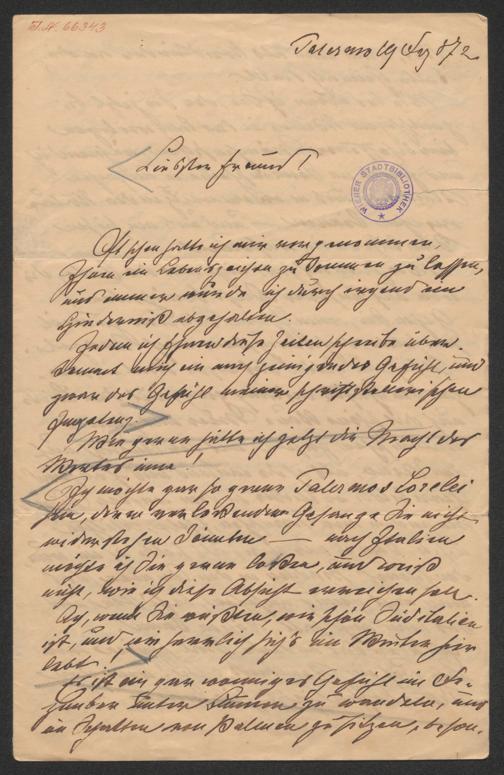 I.N. 66343
Palermo 19 Dez 872
Liebster Freund!
WIENER STADTBIBLIOTHEK
Oft schon hatte ich mir vorgenommen,
Ihnen ein Lebenszeichen zukommen zu lassen,
und immer wurde ich durch irgend ein
Hinderniß abgehalten.
Indem ich Ihnen diese Zeilen schreibe über-
kommt mich ein auch peinigendes Gefühl, und
zwar das Gefühl meiner schriftstellerischen
Impotenz.
Wie gerne hätte ich jetzt die Macht des
Wortes inne!
Ich möchte gar so gerne Palermos Lorelei
sein, deren verlockendem Gesange Sie nicht
widerstehen könnten — nach Italien
möchte ich Sie gerne locken, und weiß
nicht, wie ich diese Absicht erreichen soll.
Ach, wenn Sie wüßten, wie schön Süditalien
ist, und wie herrlich sich's im Winter hier
lebt!
Es ist ein gar wonniges Gefühl im De-
zember unter Blumen zu wandeln, und
im Schatten von Palmen zu sitzen, beson-